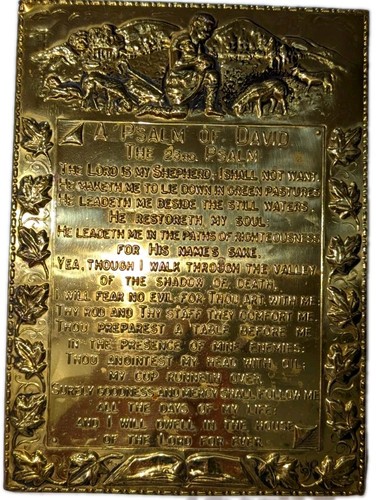 A PSALM OF DAVID
THE 23RD. PSALM
THE LORD IS MY SHEPHERD, I SHALL NOT WANT.
HE MAKETH ME TO LIE DOWN IN GREEN PASTURES:
HE LEADETH ME BESIDE THE STILL WATERS.
HE RESTORETH MY SOUL:
HE LEADETH ME IN THE PATHS OF RIGHTEOUSNESS
FOR HIS NAME'S SAKE.
YEA, THOUGH I WALK THROUGH THE VALLEY
OF THE SHADOW OF DEATH,
I WILL FEAR NO EVIL: FOR THOU ART WITH ME:
THY ROD AND THY STAFF THEY COMFORT ME.
THOU PREPAREST A TABLE BEFORE ME
IN THE PRESENCE OF MINE ENEMIES:
THOU ANOINTEST MY HEAD WITH OIL:
MY CUP RUNNETH OVER.
SURELY GOODNESS AND MERCY SHALL FOLLOW ME
ALL THE DAYS OF MY LIFE:
AND I WILL DWELL IN THE HOUSE
OF THE LORD FOR EVER.